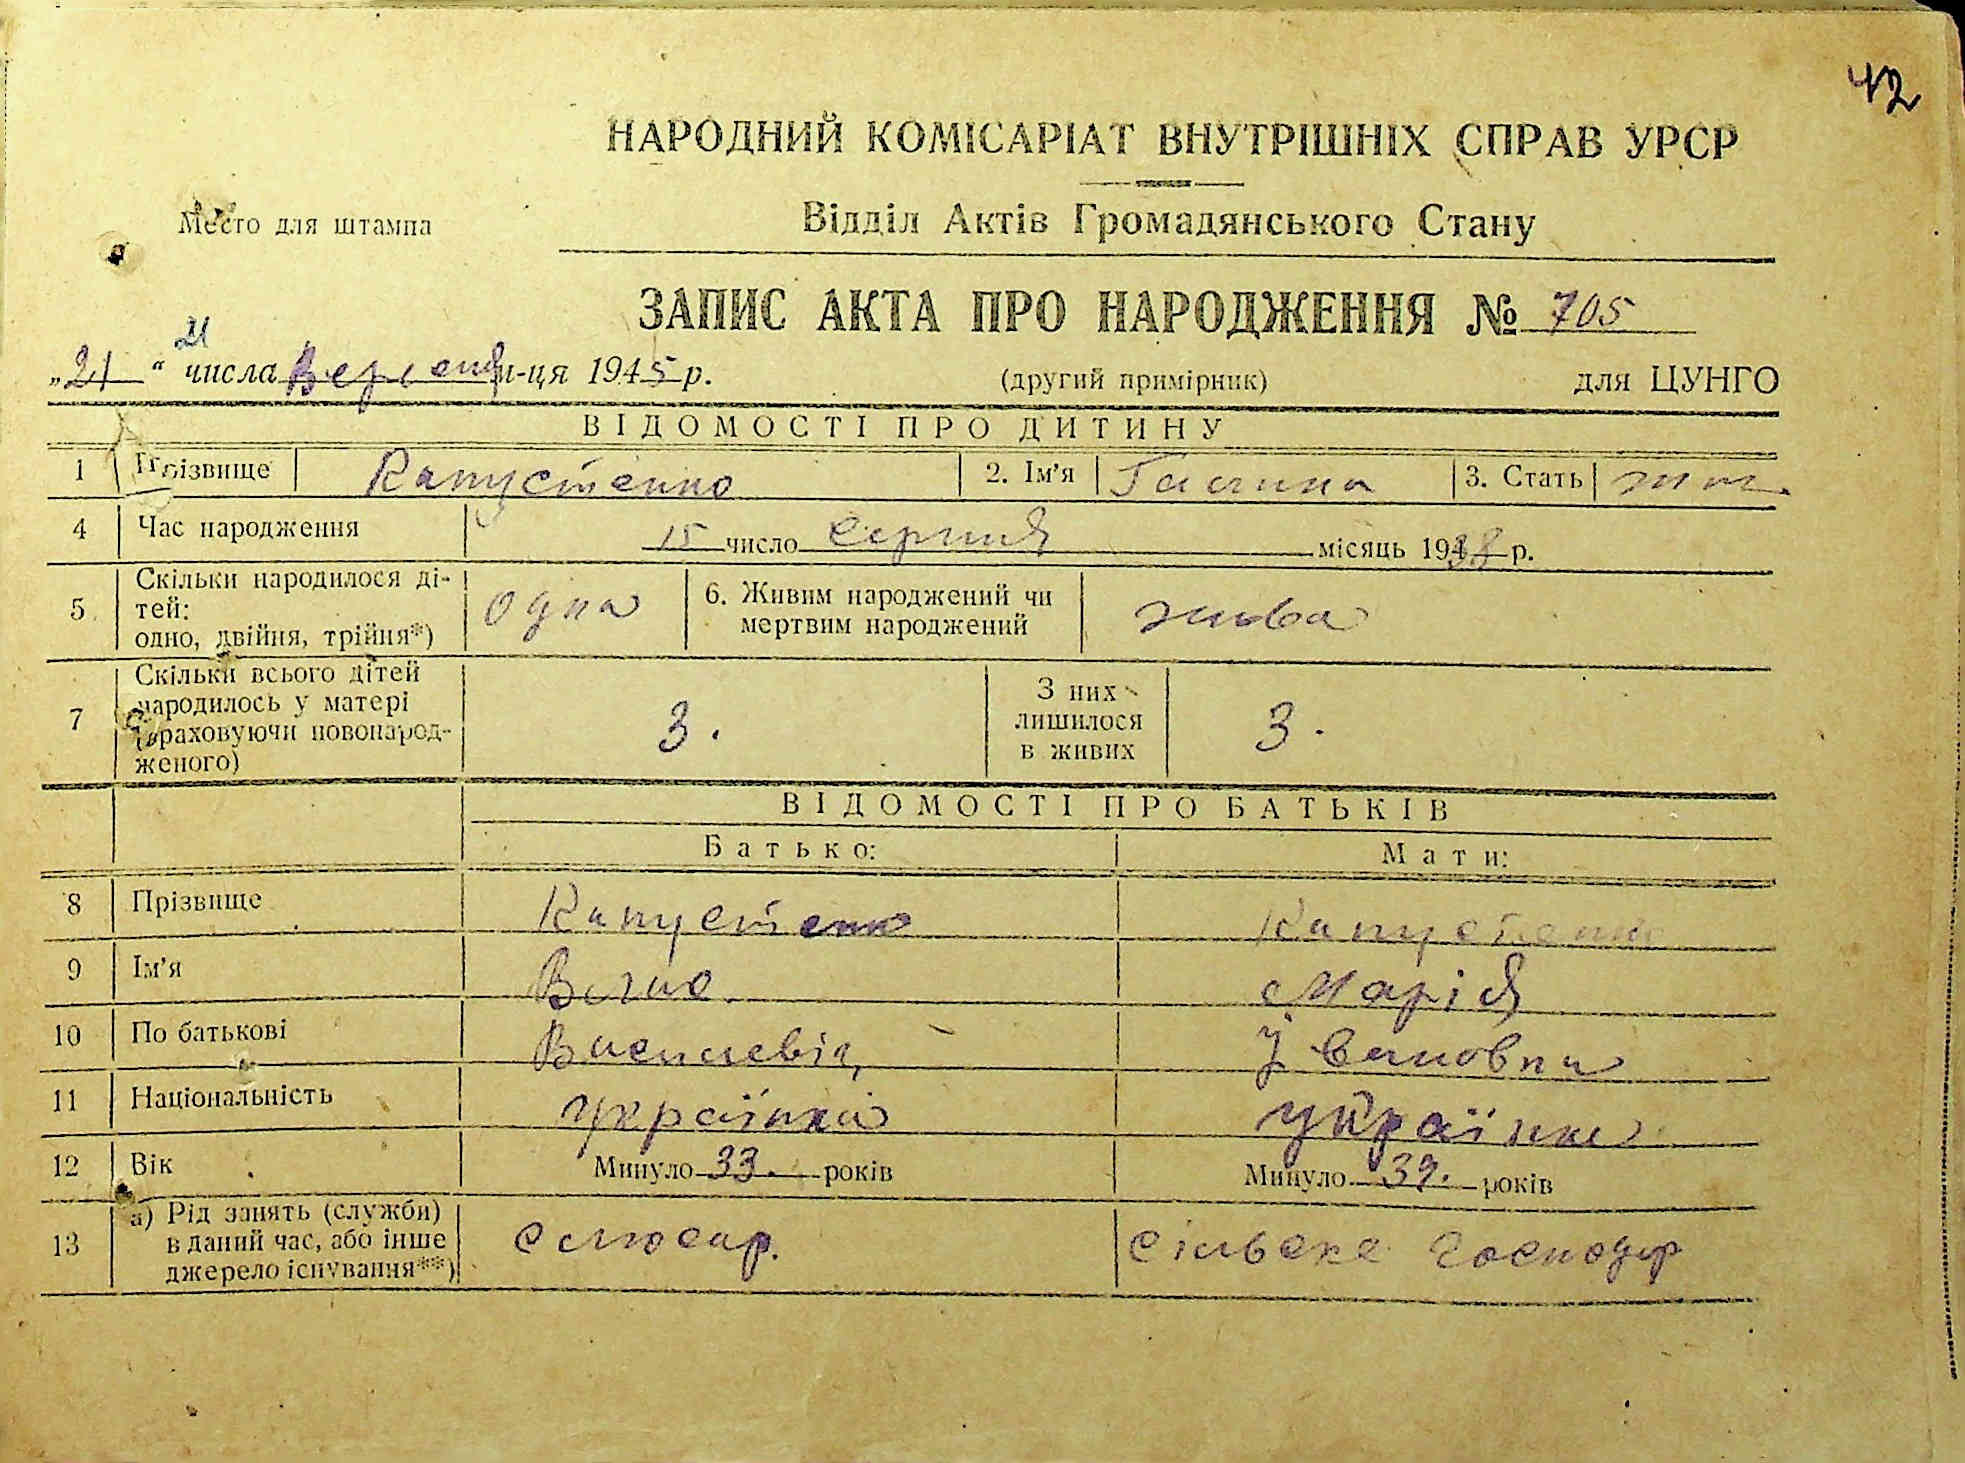 42
НАРОДНИЙ КОМІСАРІАТ ВНУТРІШНІХ СПРАВ УРСР
Место для штампа
Відділ Актів Громадянського Стану
ЗАПИС АКТА ПРО НАРОДЖЕННЯ № 705
21
„21“ числа Вересня м-ця 1945 р.
(другий примірник) для ЦУНГО
ВІДОМОСТІ ПРО ДИТИНУ
1 Прізвище Капустенко 2. Ім'я Галина 3. Стать жін.
4 Час народження 15 число Серпня місяць 1938 р.
5 Скільки народилося дітей: одно, двійня, трійня*) одна 6. Живим народжений чи мертвим народжений жива
7 Скільки всього дітей народилось у матері (враховуючи новонародженого) 3. З них лишилося в живих 3.
ВІДОМОСТІ ПРО БАТЬКІВ
Батько: Мати:
8 Прізвище Капустенко Капустенко
9 Ім'я Марія
10 По батькові Васильевіч Івановна
11 Національність українка українка
12 Вік Минуло 33. років Минуло 39. років
13 а) Рід занять (служби) в даний час, або інше джерело існування**) Слюсар. сільске господар